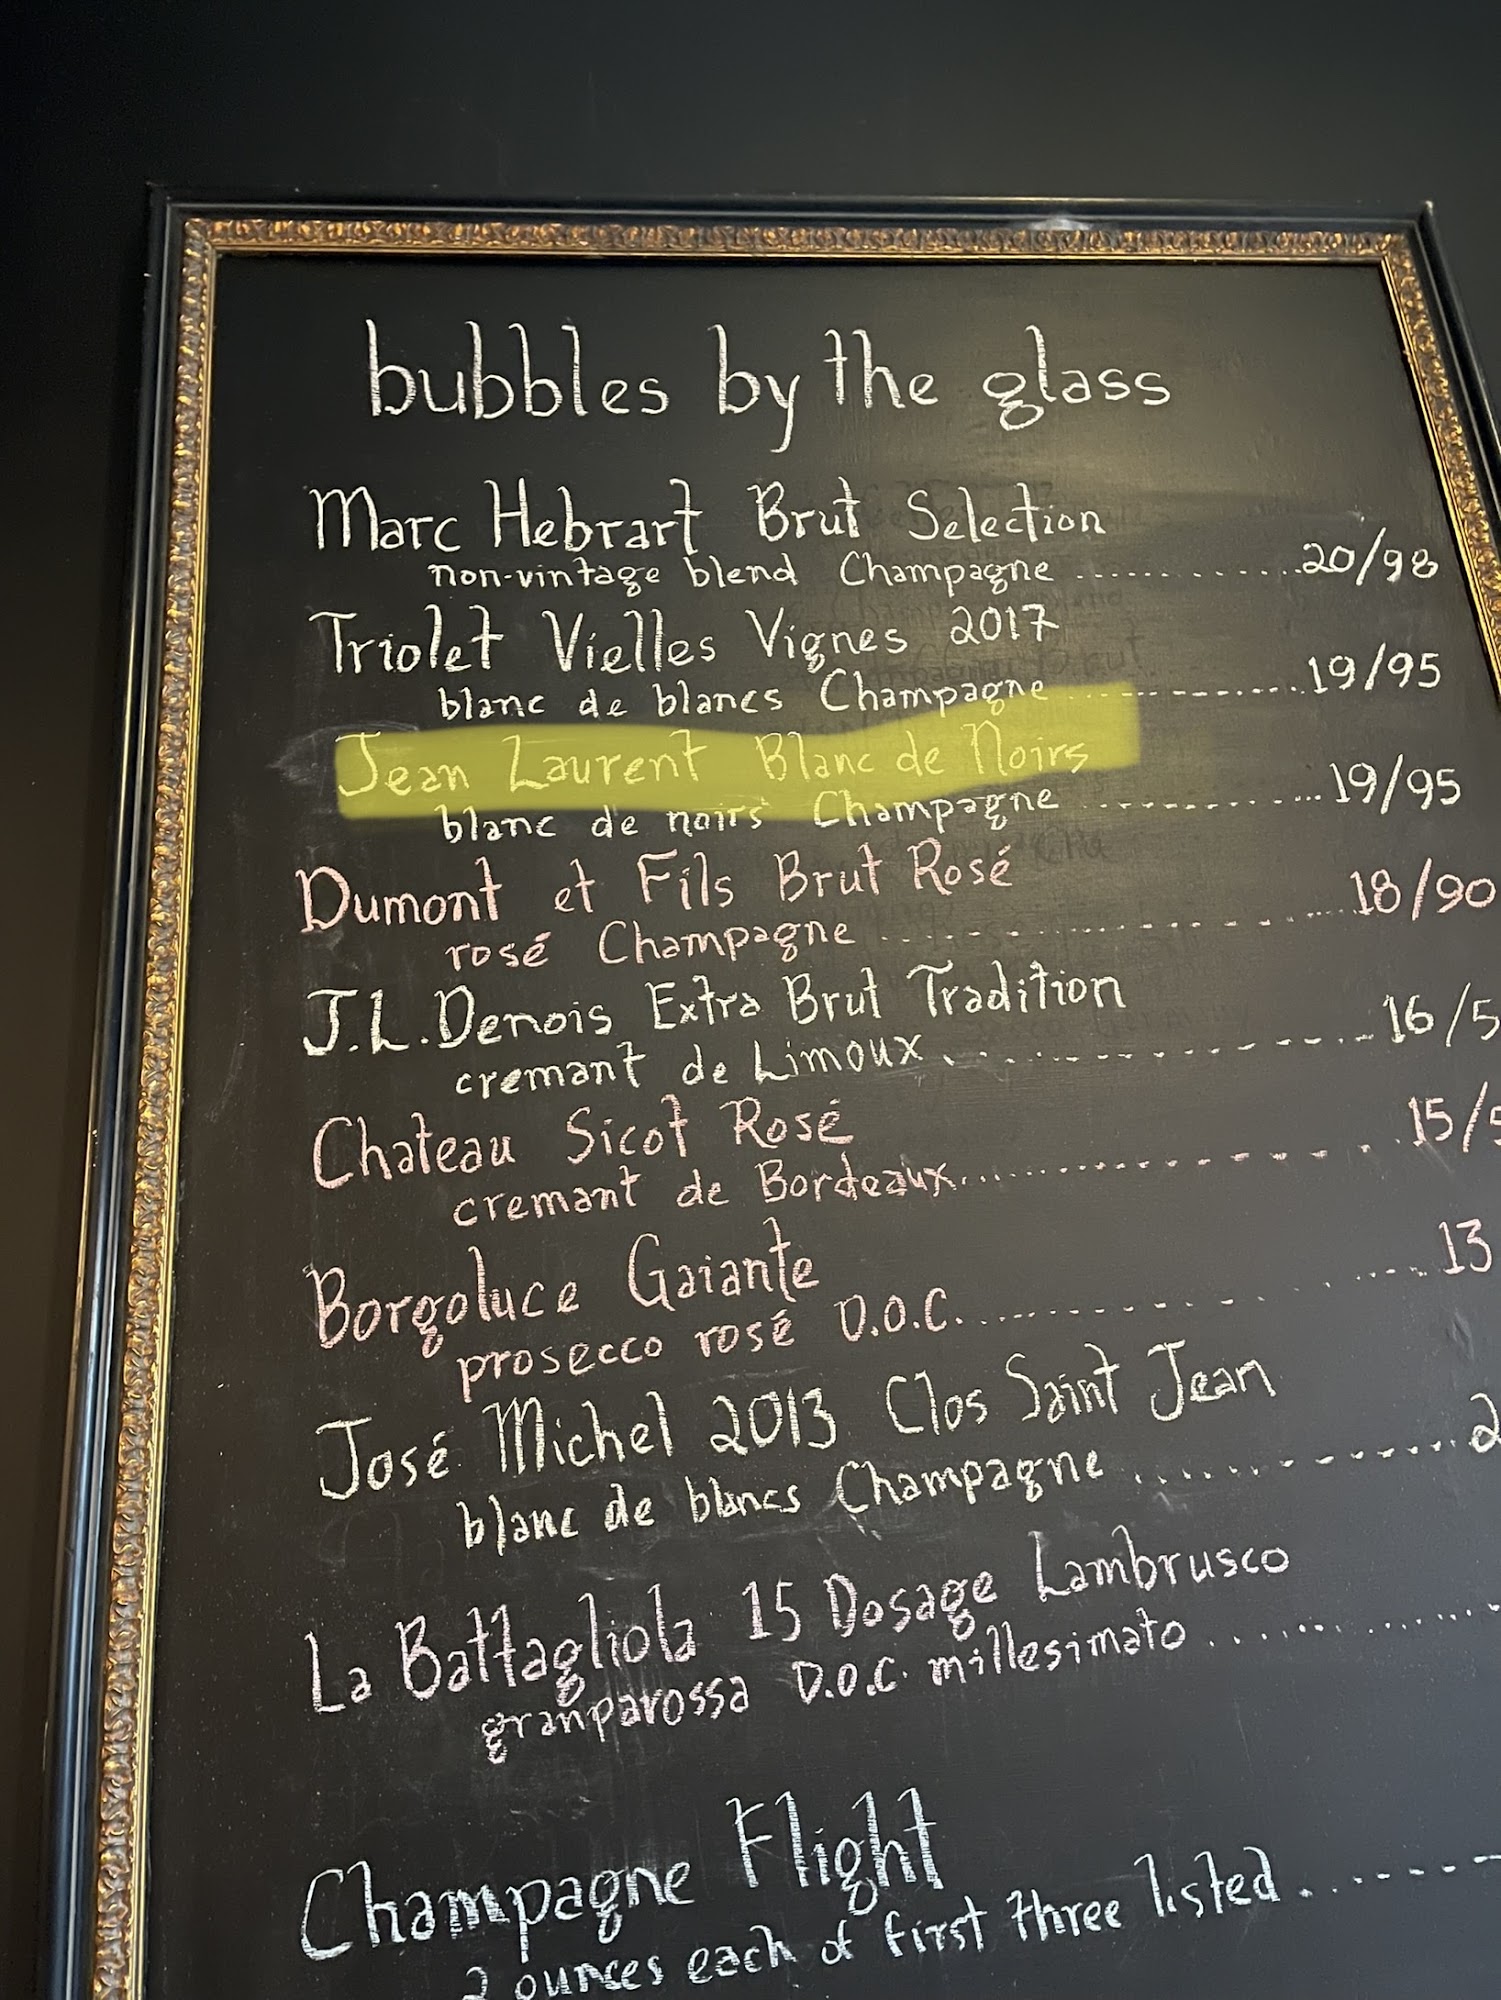 bubbles by the glass
Marc Hebrart Brut Selection
non-vintage blend Champagne ............. 20/98
Triolet Vielles Vignes 2017
blanc de blancs Champagne ............. 19/95
Jean Laurent Blanc de Noirs
blanc de noirs Champagne ............. 19/95
Dumont et Fils Brut Rosé
rosé Champagne ............. 18/90
J.L. Denois Extra Brut Tradition
cremant de Limoux ............. 16/5
Chateau Sicot Rosé
cremant de Bordeaux ............. 15/5
Borgoluce Gaiante
prosecco rosé D.O.C. ............. 13
José Michel 2013 Clos Saint Jean
blanc de blancs Champagne ............. 2
La Battagliola 15 Dosage Lambrusco
granparossa D.O.C. millesimato .............
Champagne Flight
2 ounces each of first three listed .............